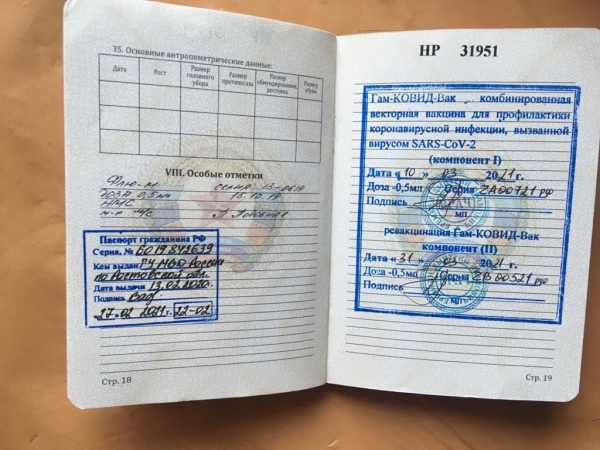 35. Основные антропометрические данные:
Дата Рост Размер головного убора Размер противогаза Размер обмундирования, ростовка Размер обуви
VIII. Особые отметки
Флю-М серия 13-0619
ДОЗА 0,5 мл 15.10.19
НМС
м/с
Паспорт гражданина РФ
Серия, №
Кем выдан ГУ МВД России
по Ростовской обл.
Дата выдачи 13.02.2020.
Подпись
"27" 02 2021 г. 22-02
Стр. 18
НР 31951
Гам-КОВИД-Вак комбинированная
векторная вакцина для профилактики
коронавирусной инфекции, вызванной
вирусом SARS-CoV-2
(компонент I)
Дата « 10 » 03 2021г.
Доза -0,5мл Серия
Подпись
МП
ревакцинация Гам-КОВИД-Вак
компонент (II)
Дата « 31 » 03 2021г.
Доза -0,5мл Серия
Подпись
МП
Стр. 19